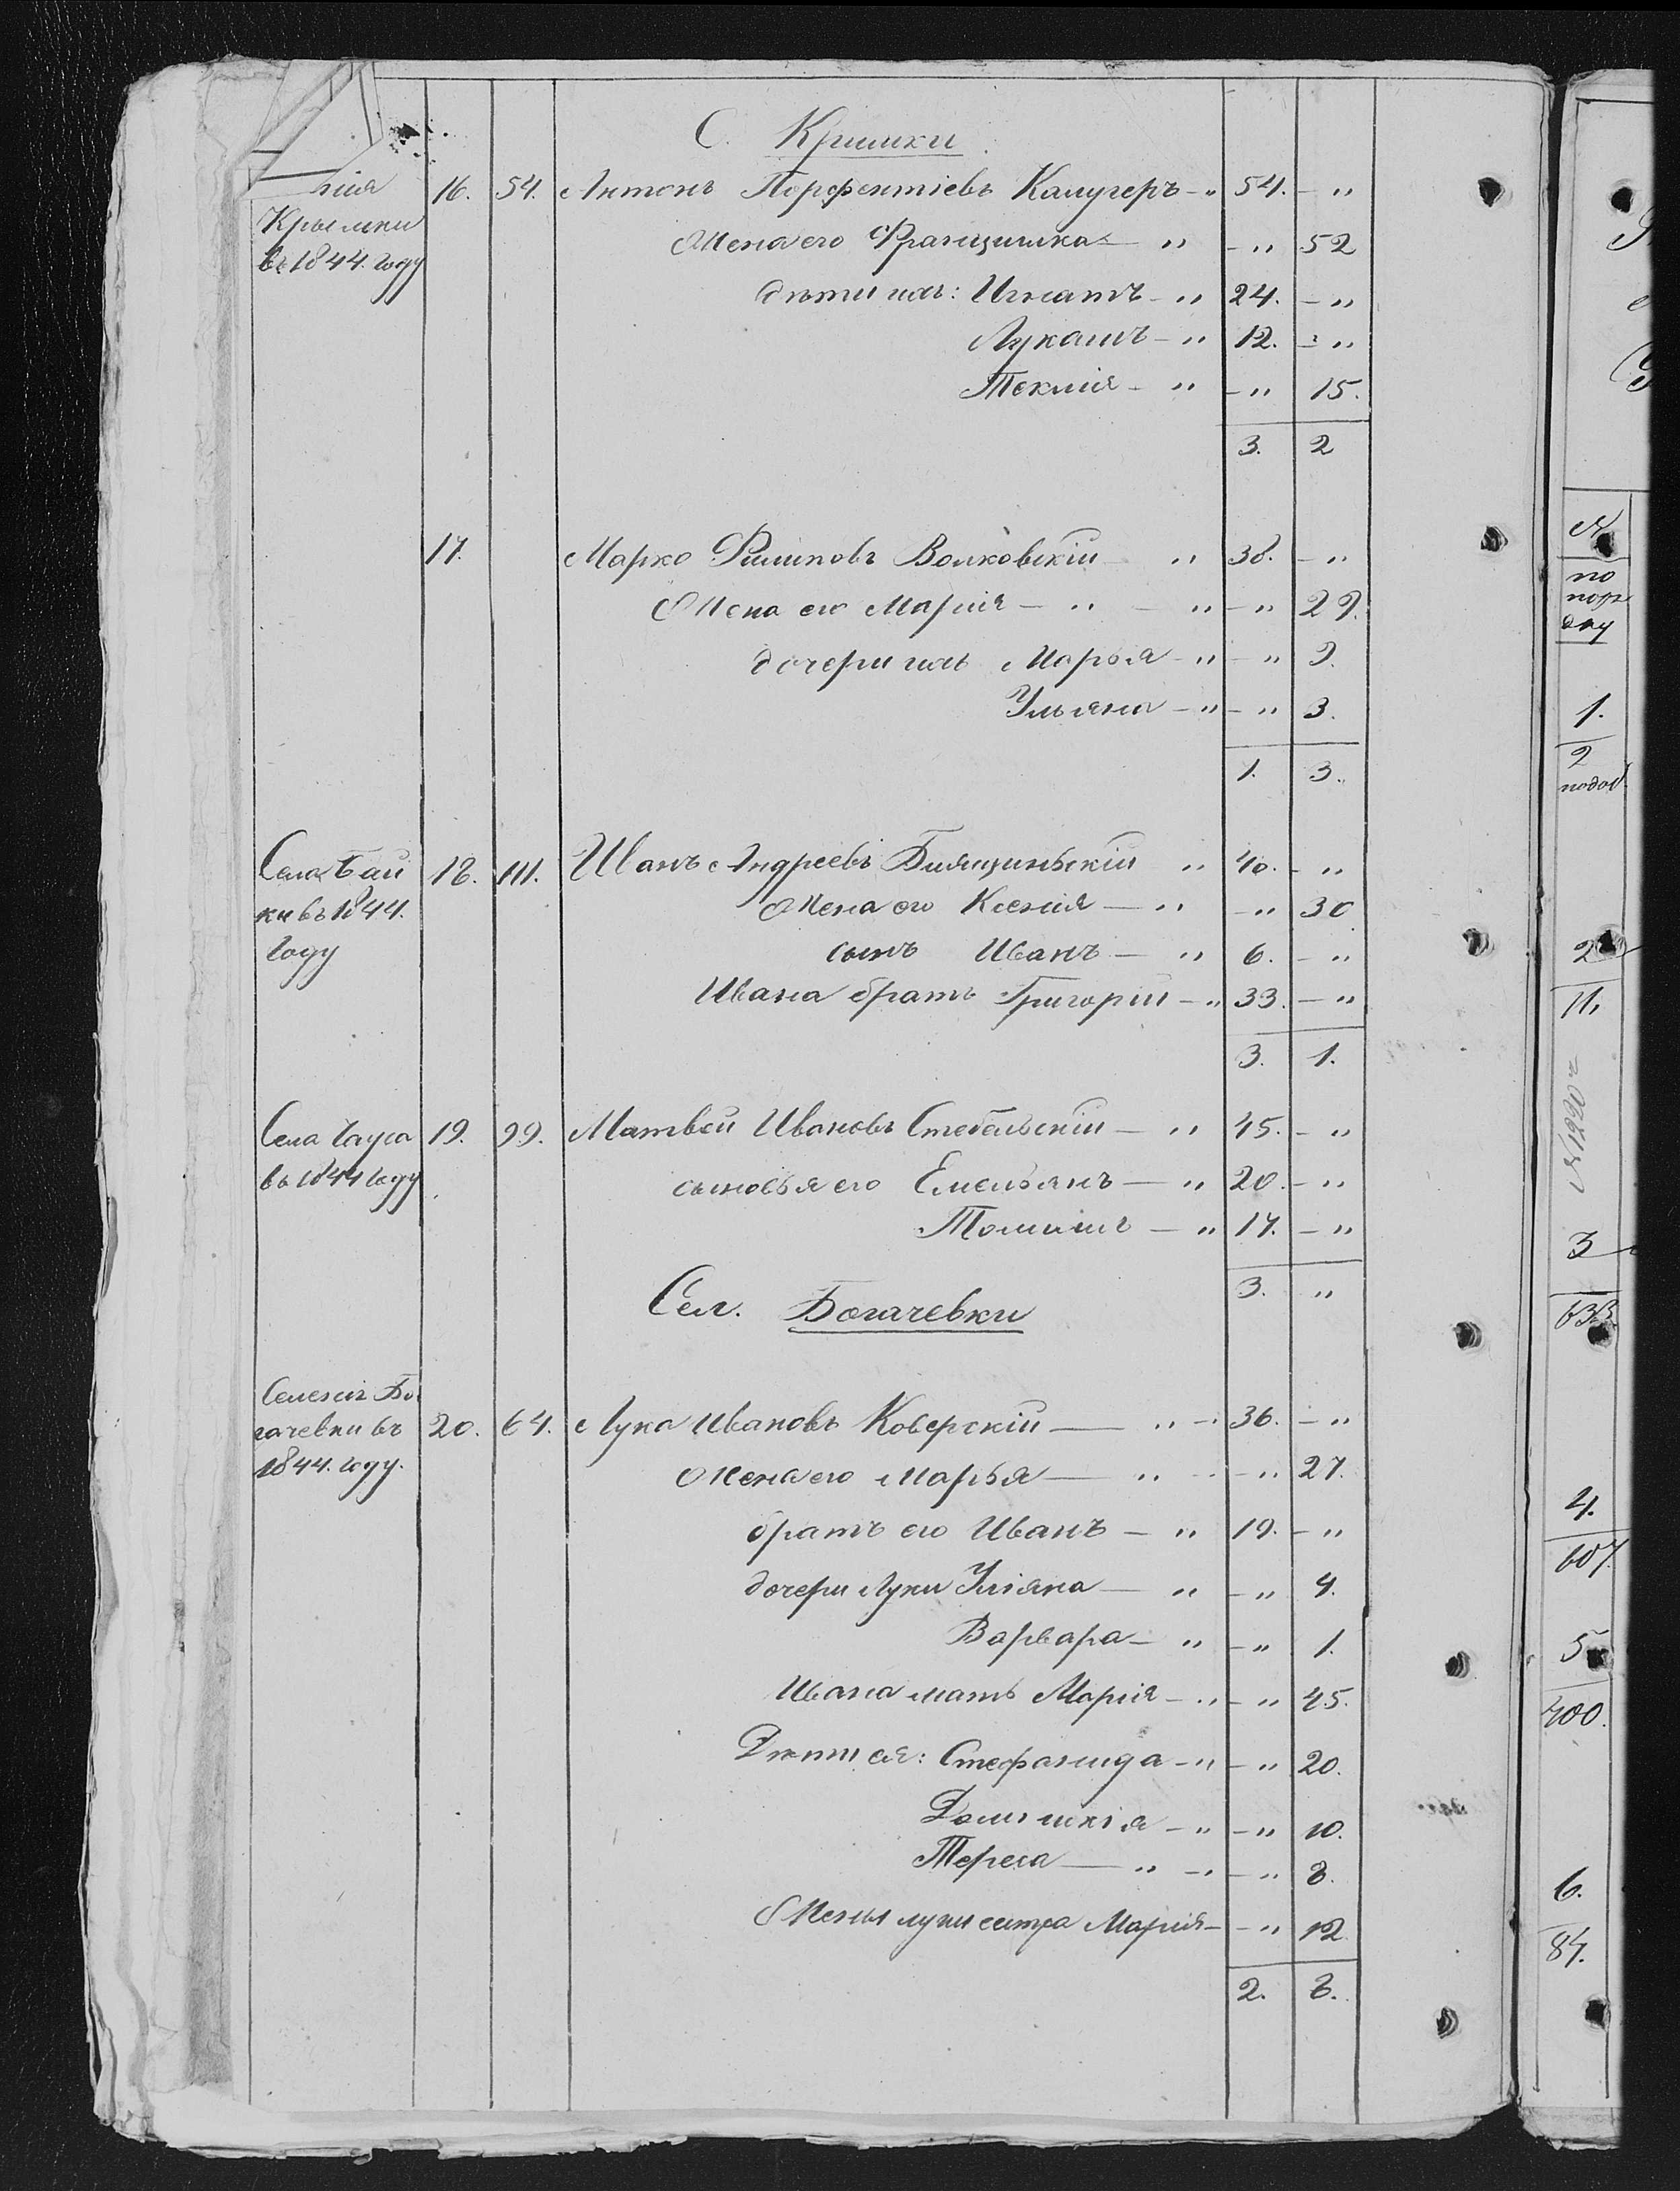 С. Кришки
нія 16. 54. Антонъ Порфентіевъ Калугеръ — " 54. — "
Крышки Жена его Францишка — " — " 52
въ 1844. году
дѣти ихъ: Игнатъ — " 24. — "
Лукашъ — " 12. — "
Теклия — " — " 15.
3. 2
17. Марко Филиповъ Волковскій — " 38. — "
Жена его Марія — " — " — " 29.
дочери ихъ Марья — " — " 9.
Ульяна — " — " 3.
1. 3.
Села Бай 18. 111. Иванъ Андреевъ " 40. — "
ки въ 1844. Жена его Ксенія — " — " 30
году сынъ Иванъ — " 6. — "
Ивана братъ Григорій — " 33. — "
3. 1.
Села Чауса 19. 99. Матвей Ивановъ Стебельскій — " 45. — "
въ 1844 году сыновья его Емельянъ — " 20. — "
Томишъ — " 17. — "
3. "
Сел. Богачевки
Селенія Бо
гачевки въ 20. 64. Лука Ивановъ Коверскій — " — 36. — "
1844. году. Жена его Марья — " — " 27.
братъ его Иванъ — " 19. — "
дочери Луки Уліяна — " — " 4.
Варвара — " — " 1.
Ивана мать Марія — " — " 45.
Дѣти ея: Стефанида — " — " 20.
— " — " 10.
Тереса — " — " — " 8.
Жены луки сестра Марія — — " 12
2. 8.
№
по
поря
дку
1.
2
подов
2
11.
№1220
3
633.
4.
607.
5
400.
6.
84.